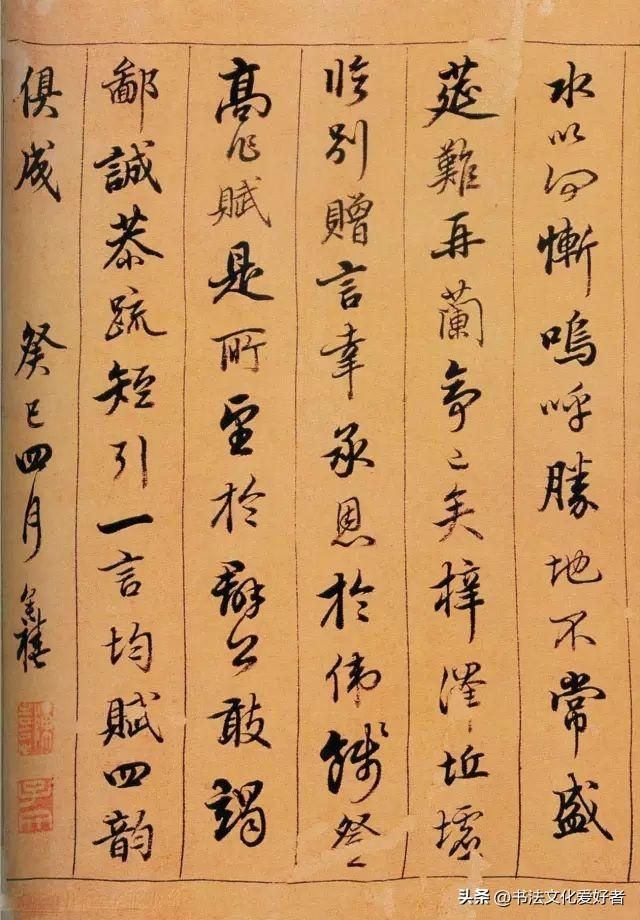 水以何慚嗚呼勝地不常盛
莚難再蘭亭已矣梓澤坵墟
臨別贈言幸承恩於偉餞登
高作賦是所望於群公敢竭
鄙誠恭疏短引一言均賦四韻
俱成 癸巳四月
头条 @书法文化爱好者